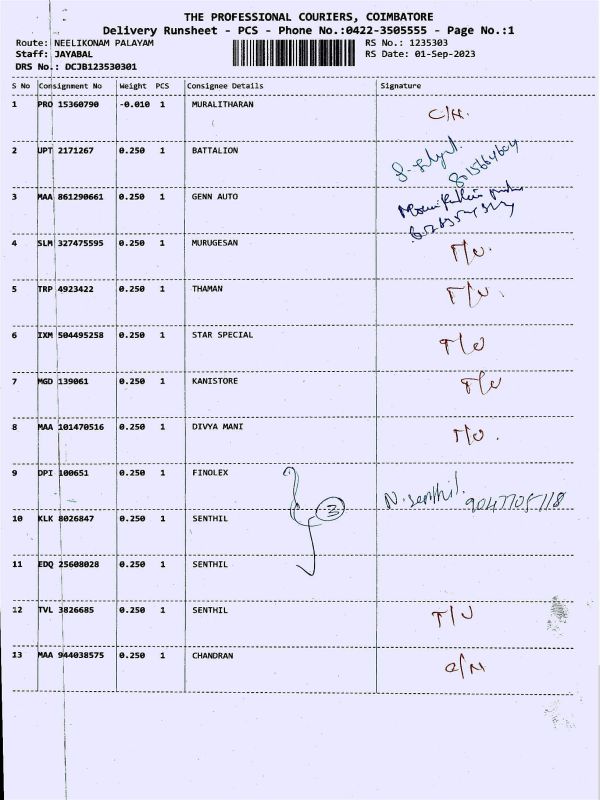 THE PROFESSIONAL COURIERS, COIMBATORE
Delivery Runsheet - PCS - Phone No.:0422-3505555 - Page No.:1
Route: NEELIKONAM PALAYAM RS No.: 1235303
Staff: JAYABAL RS Date: 01-Sep-2023
DRS No.: DCJB123530301
S No Consignment No Weight PCS Consignee Details Signature
1 PRO 15360790 -0.010 1 MURALITHARAN
2 UPT 2171267 0.250 1 BATTALION
3 MAA 861290661 0.250 1 GENN AUTO
4 SLM 327475595 0.250 1 MURUGESAN
5 TRP 4923422 0.250 1 THAMAN
6 IXM 504495258 0.250 1 STAR SPECIAL T/U
7 MGD 139061 0.250 1 KANISTORE
8 MAA 101470516 0.250 1 DIVYA MANI
9 DPI 100651 0.250 1 FINOLEX N. Senthil. 9047705118
3
10 KLK 8026847 0.250 1 SENTHIL
11 EDQ 25608028 0.250 1 SENTHIL
12 TVL 3826685 0.250 1 SENTHIL T/U
13 MAA 944038575 0.250 1 CHANDRAN